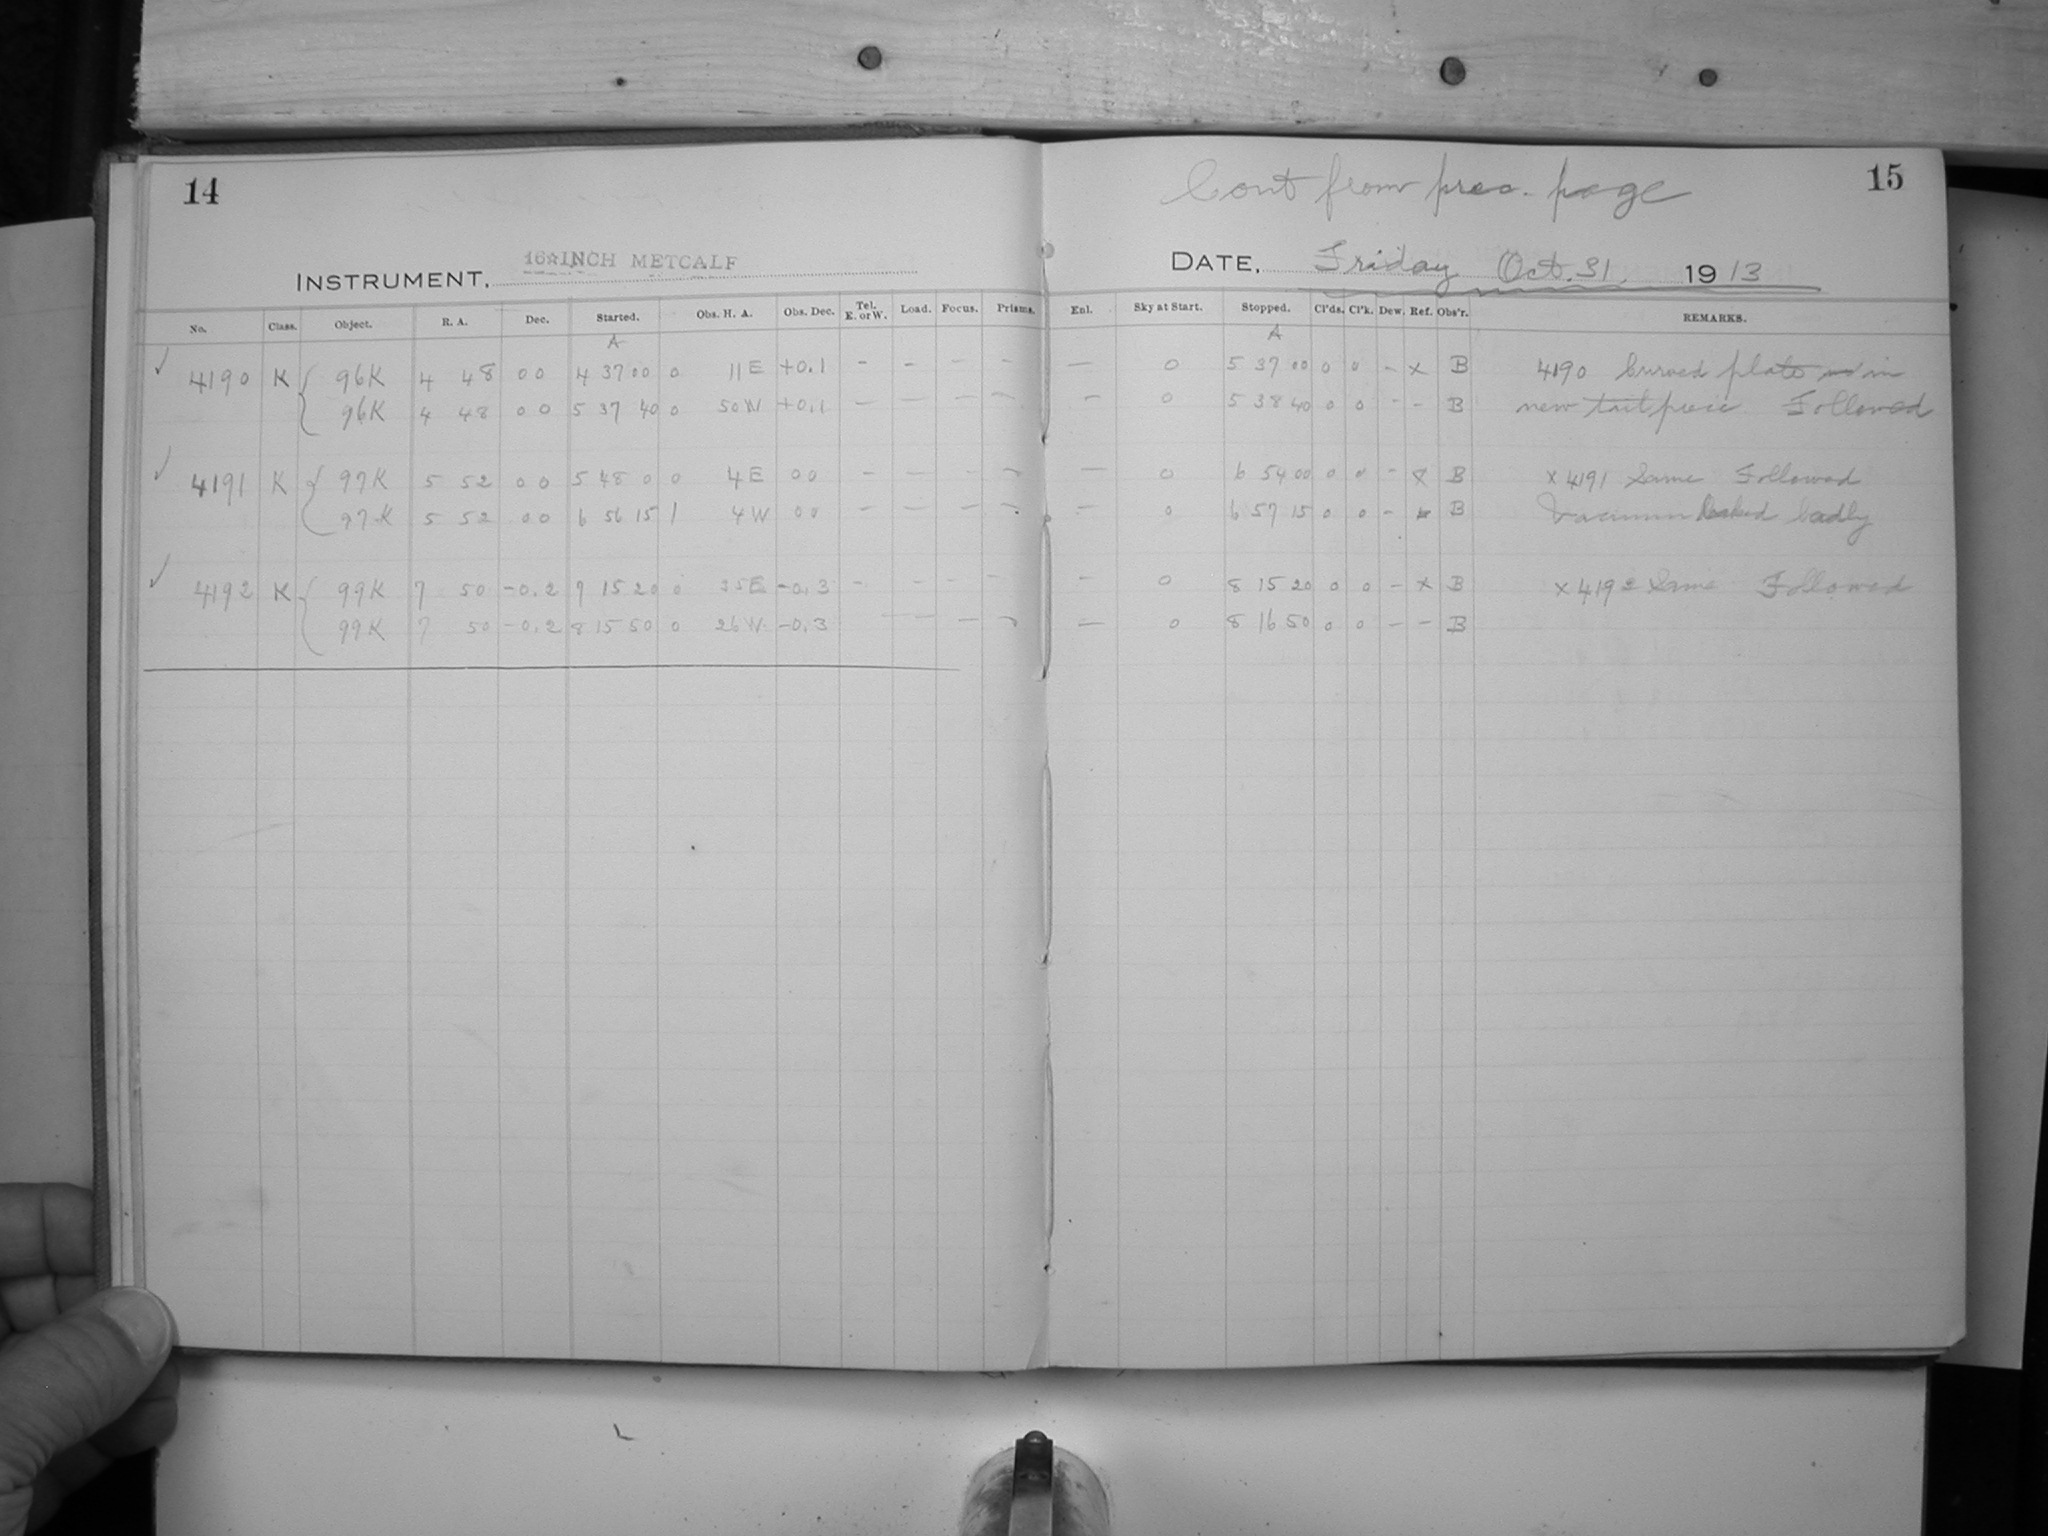 14
INSTRUMENT, 16 INCH METCALF
No. Class. Object. R. A. Dec. Started. Obs. H. A. Obs. Dec. Tel. E. or W. Load. Focus. Prisms.
A
✓ 4190 K 96K 4 48 00 4 37 00 0 11 E +0.1 – – – –
96K 4 48 00 5 37 40 0 50 W +0.1 – – – –
✓ 4191 K 97K 5 52 00 5 48 0 0 4 E 00 – – – –
97K 5 52 00 6 56 15 1 4 W 00 – – – –
✓ 4192 K 99K 7 50 -0.2 7 15 20 0 35 E -0.3 – – – –
99K 7 50 -0.2 8 15 50 0 26 W -0.3 – – –
Cont from prec. page
15
DATE, Friday Oct. 31 1913
Enl. Sky at Start. Stopped. Cl'ds. Cl'k. Dew. Ref. Obs'r. REMARKS.
A
– 0 5 37 00 0 0 – x B 4190 Curved plate in
– 0 5 38 40 0 0 – – B new tailpiece Followed
– 0 6 54 00 0 0 – x B x 4191 Same Followed
– 0 6 57 15 0 0 – B Vacuum leaked badly
– 0 8 15 20 0 0 – x B x 4192 Same Followed
– 0 8 16 50 0 0 – – B